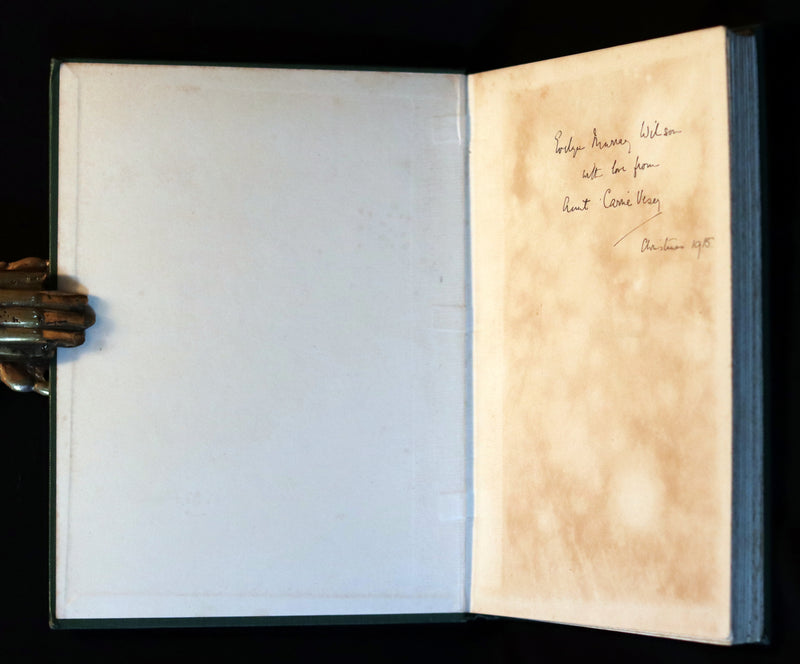 Evelyn Murray Wilson
with love from
Aunt Carrie Vesey
Christmas 1915